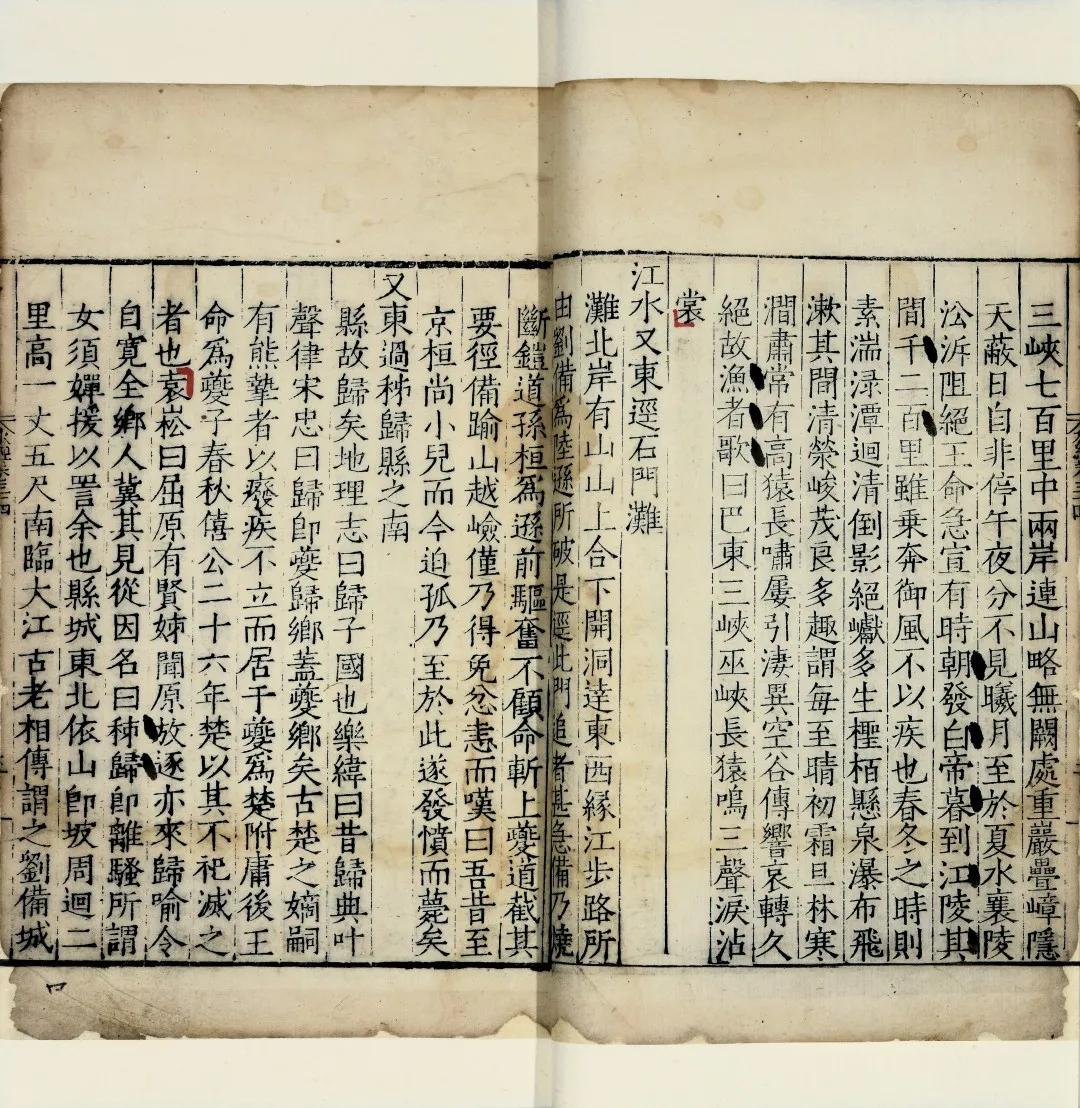 三峽七百里中兩岸連山略無闕處重巖疊嶂隱
天蔽日自非停午夜分不見曦月至於夏水襄陵
㳂泝阻絕王命急宣有時朝發白帝暮到江陵其
間千二百里雖乗奔御風不以疾也春冬之時則
素湍渌潭迴清倒影絕巘多生檉栢懸泉瀑布飛
漱其間清榮峻茂良多趣謂每至晴初霜旦林寒
澗肅常有高猿長嘯屢引淒異空谷傳響哀轉久
絕故漁者歌曰巴東三峽巫峽長猿鳴三聲淚沾
裳
江水又東逕石門灘
灘北岸有山山上合下開洞達東西緣江步路所
由劉備爲陸遜所破是逕此門追者甚急備乃燒
斷鎧道孫桓爲遜前驅奮不顧命斬上夔道截其
要徑備踰山越嶮僅乃得免忿恚而嘆曰吾昔至
京桓尚小兒而今迫孤乃至於此遂發憤而薨矣
又東過秭歸縣之南
縣故歸矣地理志曰歸子國也樂緯曰昔歸典叶
聲律宋忠曰歸卽夔歸鄉蓋夔鄉矣古楚之嫡嗣
有熊摯者以癈疾不立而居于夔爲楚附庸後王
命爲夔子春秋僖公二十六年楚以其不祀滅之
者也袁崧曰屈原有賢姊聞原放逐亦來歸喻令
自寬全鄉人兾其見從因名曰秭歸卽離騷所謂
女須嬋援以詈余也縣城東北依山卽坡周迴二
里高一丈五尺南臨大江古老相傳謂之劉備城